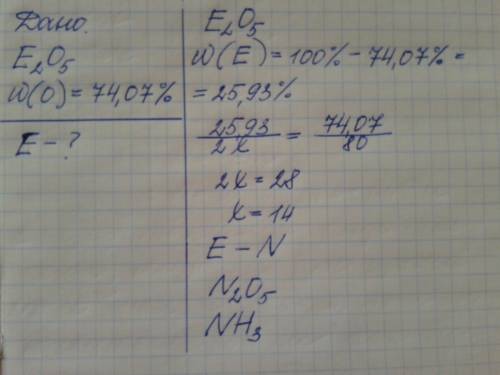 Дано.
E₂O₅
W(O) = 74,07%
E – ?
E₂O₅
W(E) = 100% – 74,07% =
= 25,93%
25,93/2x = 74,07/80
2x = 28
x = 14
E – N
N₂O₅
NH₃